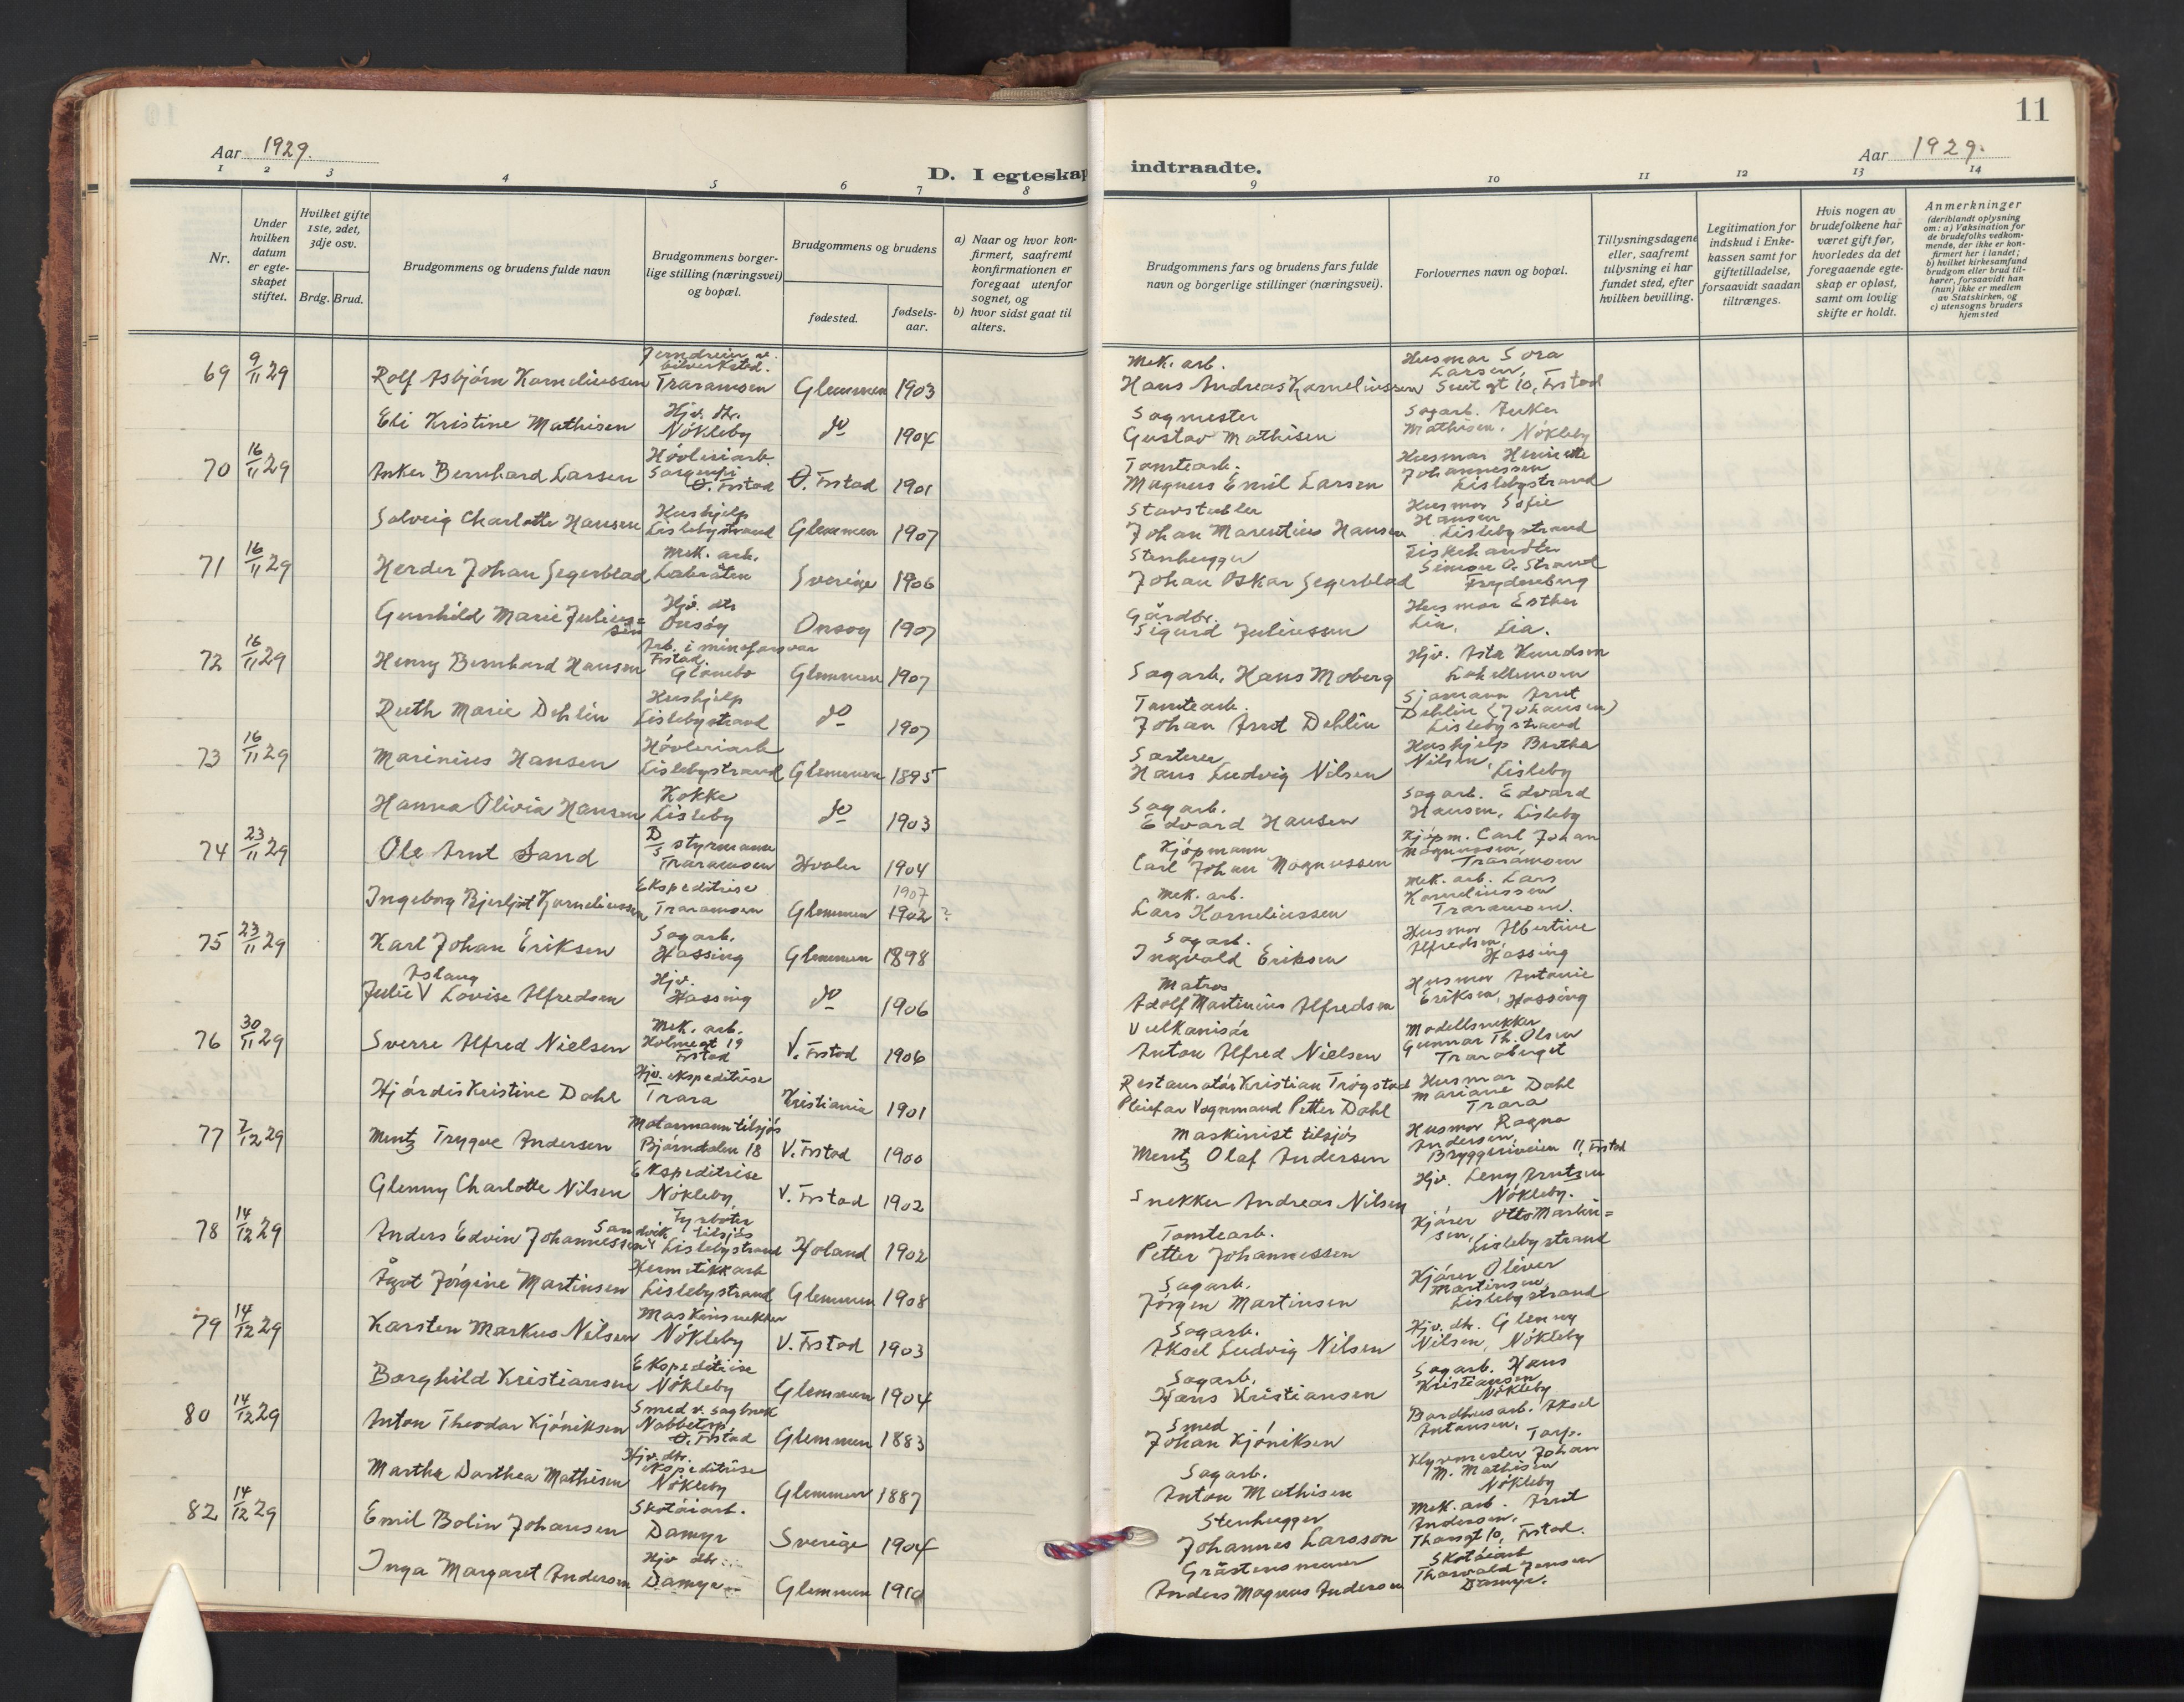 11
Aar 1929.
Aar 1929.
D. I egteskap indtraadte.
1 2 3 4 5 6 7 8 9 10 11 12 13 14
Nr.
Under hvilken datum er egte-skapet stiftet.
Hvilket gifte 1ste, 2det, 3dje osv.
Brdg. Brud.
Brudgommens og brudens fulde navn
Brudgommens borger-lige stilling (næringsvei) og bopæl.
Brudgommens og brudens
fødested.
fødsels-aar.
a) Naar og hvor kon-firmert, saafremt konfirmationen er foregaat utenfor sognet, og
b) hvor sidst gaat til alters.
Brudgommens fars og brudens fars fulde navn og borgerlige stillinger (næringsvei).
Forlovernes navn og bopæl.
Tillysningsdagene eller, saafremt tillysning ei har fundet sted, efter hvilken bevilling.
Legitimation for indskud i Enke-kassen samt for giftetilladelse, forsaavidt saadan tiltrænges.
Hvis nogen av brudefolkene har været gift før, hvorledes da det foregaaende egte-skap er opløst, samt om lovlig skifte er holdt.
Anmerkninger (deriblandt oplysning om: a) Vaksination for de brudefolks vedkom-mende, der ikke er kon-firmert her i landet; b) hvilket kirkesamfund brudgom eller brud til-hører, forsaavidt han (hun) ikke er medlem av Statskirken, og c) utensogns bruders hjemsted
69 9/11 29 Rolf Asbjörn Korneliussen Jerndreier v. bilverksted. Traramoen Glemmen 1903 Mek. arb. Hans Andreas Korneliussen Husmor Sora Larsen, gt 10, Frstad
Eli Kristine Mathisen Hjv. dtr. Nökleby do 1904 Sagmester Gustav Mathisen Sagarb. Anker Mathisen. Nökleby
70 16/11 29 Anker Bernhard Larsen Hövleriarb. Ö. Frstad Ö. Frstad 1901 Tomtearb. Magnus Emil Larsen Husmor Henriette Johannessen Lislebystrand
Solveig Charlotte Hansen Hushjelp Lislebystrand Glemmen 1907 Stavstabler Johan Marentius Hansen Husmor Sofie Hansen Lislebystrand
71 16/11 29 Herder Johan Segerblad Mek. arb. Labråten Sverige 1906 Stenhugger Johan Oskar Segerblad Fiskehandler Simon O. Strand Frydenberg
Gunhild Marie Julius=sen Hjv. dtr Onsöy Onsoy 1907 Gårdbr. Sigurd Juliussen Husmor Esther Lia, Lia.
72 16/11 29 Henry Bernhard Hansen Arb. i mineforsvar Frstad. Glombo Glemmen 1907 Sagarb. Hans Moberg Hjv. Asta Knudsen
Ruth Marie Dehlin Hushjelp Lislebystrand do 1907 Tomtearb. Johan Arnt Dehlin Sjömann Arnt Dehlin (Johansen) Lislebystrand
73 16/11 29 Marinius Hansen Hövleriarb Lislebystrand Glemmen 1895 Sorterer Hans Ludvig Nilsen Hushjelp Bertha Nilsen, Lisleby
Hanna Olivia Hansen Kokke Lisleby do 1903 Sagarb. Edvard Hansen Sagarb. Edvard Hansen, Lisleby
74 23/11 29 Ole Arnt Sand D/S styrmann Traramoen Hvaler 1904 Kjöpmann Carl Johan Magnussen Kjöpm. Carl Johan Magnussen, Traramoen
Ingeborg Bjerljot Korneliussen Ekspeditrise Traramoen Glemmen 1907 1902 ? Mek. arb. Lars Korneliussen Mek. arb. Lars Korneliussen Traramoen.
75 23/11 29 Karl Johan Eriksen Sagarb. Hassing Glemmen 1898 Sagarb. Ingvald Eriksen Husmor Albertine Alfredsen, Hassing
Julie V Aslaug Lovise Alfredsen Hjv. Hassing do 1906 Matros Adolf Martinius Alfredsen Husmor Antonie Eriksen, Hassing
76 30/11 29 Sverre Alfred Nielsen Mek. arb. Holmegt 19 Frstad V. Frstad 1906 Vulkanisör Anton Alfred Nielsen Modellsnekker Gunnar Th. Olsen Traraberget
Hjördis Kristine Dahl Hjv. ekspeditrise Trara Kristiania 1901 Restauratör Kristian Trögstad Pleiefar Vognmand Petter Dahl Husmor Mariane Dahl Trara
77 7/12 29 Mentz Trygve Andersen Motormann tilsjös Bjørndalen 18 V. Frstad 1900 Maskinist tilsjös Mentz Olaf Andersen Husmor Ragna Andersen, Bryggeriveien 11, Frstad
Glenny Charlotte Nilsen Ekspeditrise Nökleby, V. Frstad 1902 Snekker Andreas Nilsen Hjv. Leny Arntzen Nökleby.
78 14/12 29 Anders Edvin Johannessen Sandvik Fyrböter tilsjös Lislebystrand Höland 1902 Tomtearb. Petter Johannessen Kjörer Otto Martin=sen, Lislebystrand
Ågot Jörgine Martinsen Hermetikkarb Lislebystrand Glemmen 1908 Sagarb. Jörgen Martinsen Kjörer Oliver Martinsen, Lislebystrand
79 14/12 29 Karsten Markus Nilsen Maskinsnekker Nökleby V. Frstad 1903 Sagarb. Aksel Ludvig Nilsen Hjv. dtr. Glenny Nilsen, Nökleby
Borghild Kristiansen Ekspeditrise Nökleby Glemmen 1904 Sagarb. Hans Kristiansen Sagarb. Hans Kristiansen Nökleby
80 14/12 29 Anton Theodor Kjöniksen Smed v. sagbruk Nabbetorp, Ö. Frstad Glemmen 1883 Smed Johan Kjöniksen Bordhusarb. Aksel Antonsen, Torp.
Martha Dorthea Mathisen Hjv. dtr. ekspeditrise Nökleby Glemmen 1887 Sagarb. Anton Mathisen Klyvmester Johan M. Mathisen Nökleby
82 14/12 29 Emil Bolin Johansen Skotöiarb. Damyr Sverige 1904 Stenhugger Johannes Larsson Mek. arb. Arnt Andersen, Thorsgt 10, Frstad.
Inga Margaret Andersen Hjv dtr. Damyr Glemmen 1910 Gråstensmurer Anders Magnus Andersen Skotöiarb Thorvald Jensen Damyr.